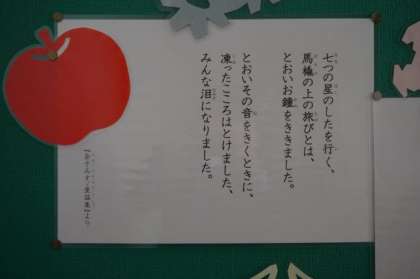 七つの星のしたを行く、
馬橇の上の旅びとは、
とおいお鐘をききました。
とおいその音をきくときに、
凍ったこころはとけました、
みんな泪になりました。